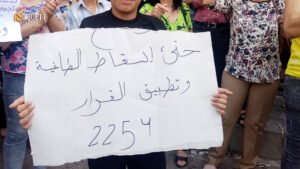 حتى إسقاط الطاغية
وتطبيق القرار
2254